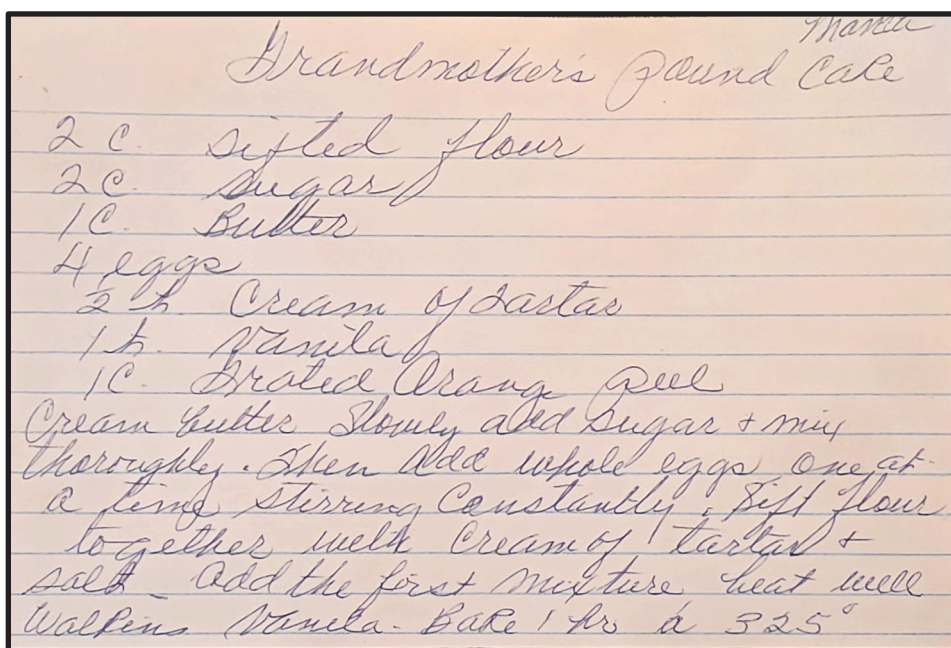 Mama
Grandmother's Pound Cake
2 C. Sifted flour
2 C. Sugar
1 C. Butter
4 eggs
Cream of Tartar
1 t. Vanila
1 C. Grated Orang peel
Cream butter Slowly add Sugar + mix
thoroughly. Then add whole eggs one at
a time stirring Constantly. Sift flour
together with Cream of tartar +
salt - add the first mixture, beat well
Watkins Vanila - Bake 1 hr a 325°